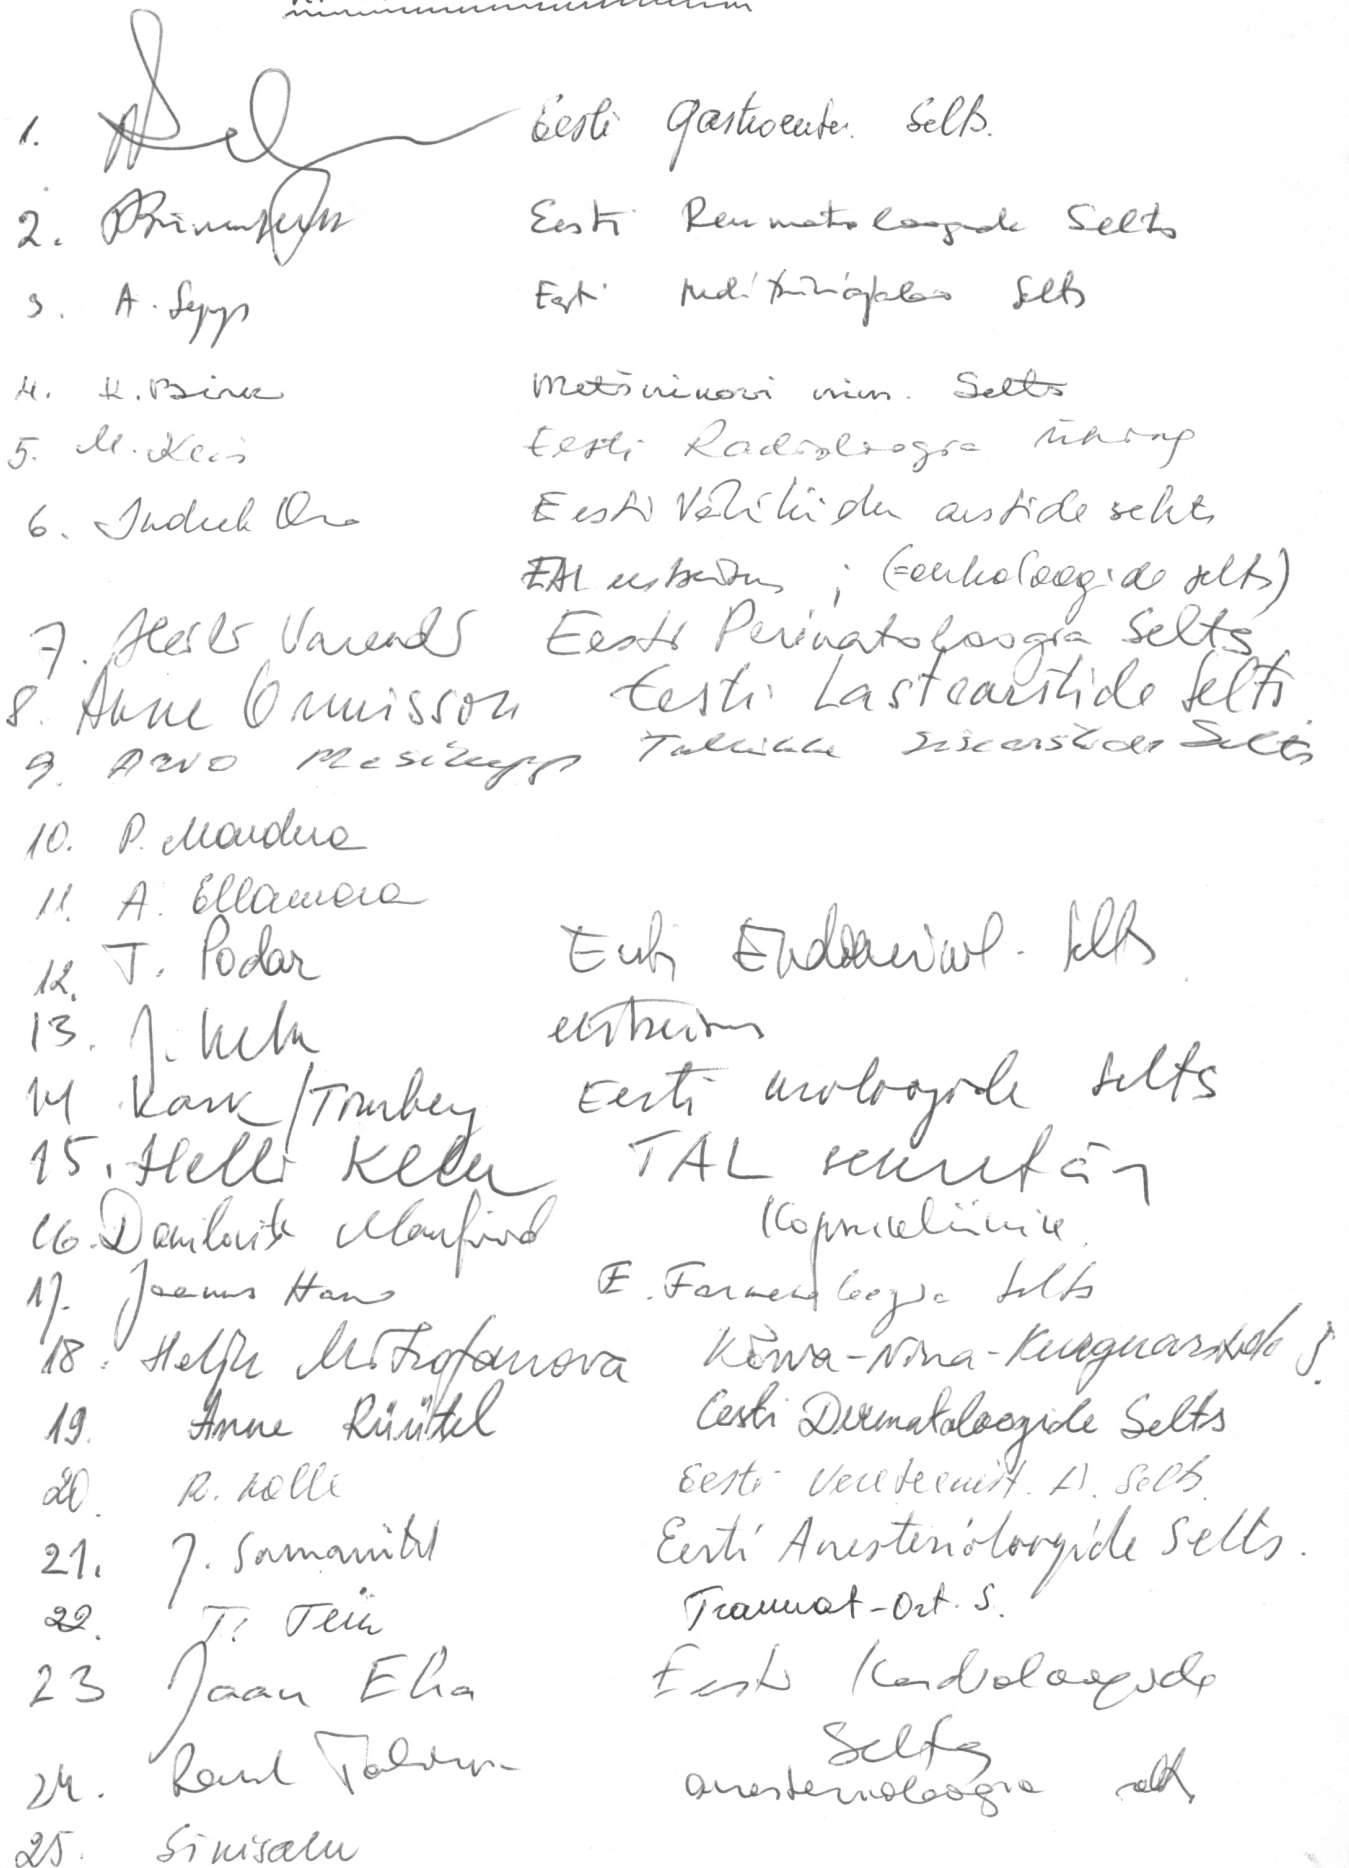 1. Eesti Gastroenter. Selts.
2. Eesti Reumatoloogide Selts
3. A. Sepp Eesti Selts
4. K. Birk Metšnikovi nim. Selts
5. M. Keis Eesti Radioloogia Ühing
6. Indrek Oro Eesti Väliskodu arstide selts
EAL eestseisus ; (=onkoloogide selts)
7. Heili Varendi Eesti Perinatoloogia Selts
8. Anne Ormisson Eesti Lastearstide Selts.
9. Arvo Mesikepp Tallinna Sisearstide Selts
10. P. Mardna
11. A. Ellamaa
12. T. Podar Eesti Endokrinol. Selts
13. J. eestseisus
14 Kask/Tomberg Eesti uroloogide selts
15. Helli Keler TAL sekretär
16. Danilovitš Manfred Kopsukliinik.
17. Jaanus Harro E. Farmakoloogia Selts
18. Helju Mitrofanova Kõrva-Nina-Kurguarstide S.
19. Anne Rüütel Eesti Dermatoloogide Selts
20. R. Kolle Eesti Vereteenist. A. Selts.
21. J. Samarütel Eesti Anestesioloogide Selts.
22. T. Tein Traumat-Ort. S.
23 Jaan Eha Eesti Kardioloogide
Selts
24. Raul Talvik anestesioloogia selts
25. Sinisalu